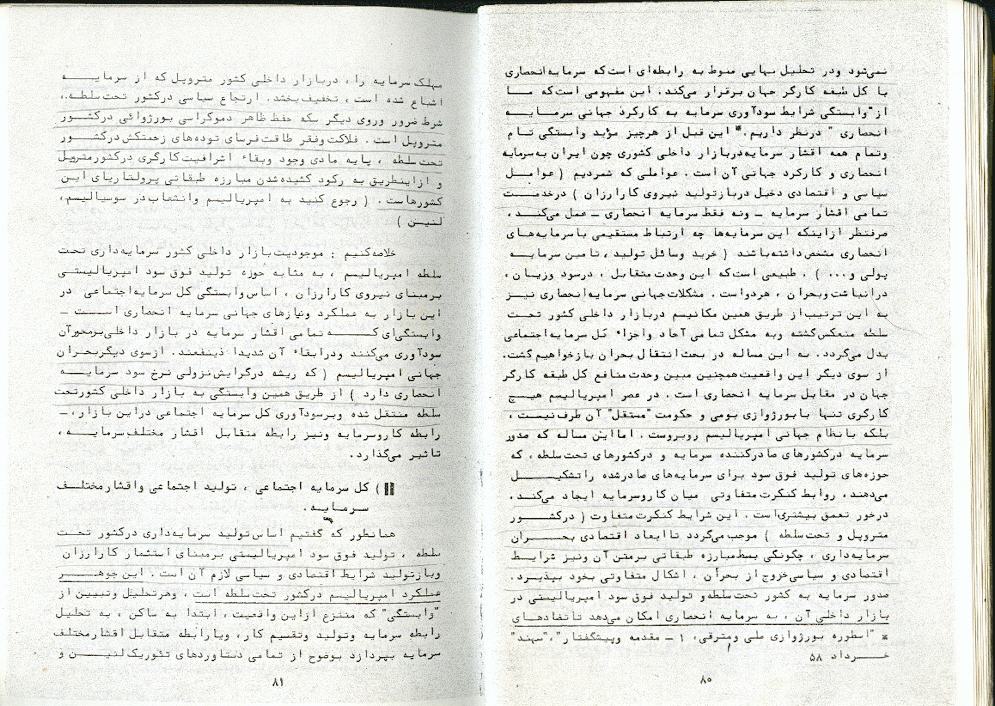 نمی‌شود ودر تحلیل نهایی منوط به رابطه‌ای است‌که سرمایه‌انحصاری
با کل طبقه کارگر جهان برقرار می‌کند. این مفهومی است‌که مــا
از "وابستگی شرایط سودآوری سرمایه به کارکرد جهانی سرمــایــه
انحصاری " درنظر داریم.* این قبل از هرچیز مؤید وابستگی تــام
وتمام همه اقشار سرمایه‌دربازار داخلی کشوری چون ایران به‌سرمایه
انحصاری و کارکرد جهانی آن است. عواملی که شمردیم ( عوامـــل
سیاسی و اقتصادی دخیل دربازتولید نیروی کارارزان ) درخدمــت
تمامی اقشار سرمایه ـ ونه فقط سرمایه انحصاری ـ عمل می‌کنــد،
صرفنظر ازاینکه این سرمایه‌ها چه ارتباط مستقیمی با سرمایه‌های
انحصاری مشخص داشته‌باشند ( خرید وسائل تولید ، تامین سرمایه
پولی و... ) . طبیعی است‌که این وحدت متقابل ، درسود وزیان،
درانباشت وبحران ، هردواست . مشکلات‌جهانی سرمایه‌انحصاری نیــز
به این ترتیب‌از طریق همین مکانیسم دربازار داخلی کشور تحت
سلطه منعکس‌گشته وبه مشکل تمامی آحاد واجزاء کل سرمایه‌اجتماعی
بدل می‌گردد. به این مساله در بحث انتقال بحران بازخواهیم گشت.
از سوی دیگر این واقعیت همچنین مبین وحدت منافع کل طبقه کارگر
جهان در مقابل سرمایه انحصاری است . در عصر امپریالیسم هیــچ
کارگری تنها با بورژوازی بومی و حکومت "مستقل" آن طرف نیست ،
بلکه با نظام جهانی امپریالیسم روبروست . اما این مساله که صدور
سرمایه درکشورهای صادرکننده سرمایه و درکشورهای تحت‌سلطه ، که
حوزه‌های تولید فوق سود برای سرمایه‌های صادرشده را تشکیـــل
می‌دهند، روابط کنکرت متفاوتی میان کاروسرمایه ایجاد می‌کند.
درخور تعمق بیشتری‌است . این شرایط کنکرت متفاوت ( درکشــــور
متروپل و تحت‌سلطه ) موجب می‌گردد تا ابعاد اقتصادی بحــــران
سرمایه‌داری ، چگونگی بسط مبارزه طبقاتی برمتن آن ونیز شرایــط
اقتصادی و سیاسی خروج از بحران ، اشکال متفاوتی بخود بپذیــرد.
صدور سرمایه به کشور تحت‌سلطه‌و تولید فوق سود امپریالیستی در
بازار داخلی آن ، به سرمایه انحصاری امکان می‌دهد تا تضادهــای
* "اسطوره بورژوازی ملی ومترقی، ۱ ـ مقدمه وپیشگفتار"، "سهند"
خــرداد ۵۸
۸۰
مهلک سرمایه را ، دربازار داخلی کشور متروپل که از سرمایــــه
اشباع شده است ، تخفیف بخشد. ارتجاع سیاسی درکشور تحت سلطه،
شرط ضرور وروی دیگر سکه حفظ ظاهر دموکراسی بورژوائی درکشــور
متروپل است . فلاکت وفقر طاقت فرسای توده‌های زحمتکش درکشــور
تحت سلطه ، پایه مادی وجود وبقاء اشرافیت کارگری درکشورمتروپل
و ازاینطریق به رکود کشیده‌شدن مبارزه طبقاتی پرولتاریای این
کشورهاست . ( رجوع کنید به امپریالیسم وانشعاب در سوسیالیسم،
لنیــن )
خلاصه‌کنیم : موجودیت بازار داخلی کشور سرمایه‌داری تحت
سلطه امپریالیسم ، به مثابه حوزه تولید فوق سود امپریالیستــی
برمبنای نیروی کارارزان ، اساس وابستگی کل سرمایه‌اجتماعی در
این بازار به عملکرد ونیازهای جهانی سرمایه انحصاری اســـت ـ
وابستگی‌ای کـــه تمامی اقشار سرمایه در بازار داخلی برمحورآن
سودآوری می‌کنند ودرابقاء آن شدیدا ذینفعند. ازسوی دیگربحـران
جهانی امپریالیسم ( که ریشه درگرایش نزولی نرخ سود سرمایه
انحصاری دارد ) از طریق همین وابستگی به بازار داخلی کشورتحت
سلطه منتقل شده وبرسودآوری کل سرمایه اجتماعی دراین بازار،ـ
رابطه کاروسرمایه ونیز رابطه متقابل اقشار مختلف سرمایـــه،
تاثیر می‌گذارد.
II ) کل سرمایه اجتماعی ، تولید اجتماعی واقشارمختلــف
سرمایــه.
همانطور که گفتیم اساس تولید سرمایه‌داری درکشور تحــت
سلطه ، تولید فوق سود امپریالیستی برمبنای استثمار کارارزان
وبازتولید شرایط اقتصادی و سیاسی لازم آن است . این جوهـــر
عملکرد امپریالیسم درکشور تحت سلطه است ، وهرتحلیل وتبیین از
"وابستگی" که منتزع ازاین واقعیت ، ابتدا به ساکن ، به تحلیل
رابطه سرمایه وتولید وتقسیم کار، ویارابطه متقابل اقشارمختلف
سرمایه بپردازد بوضوح از تمامی دستاوردهای تئوریک لنیــن و
۸۱